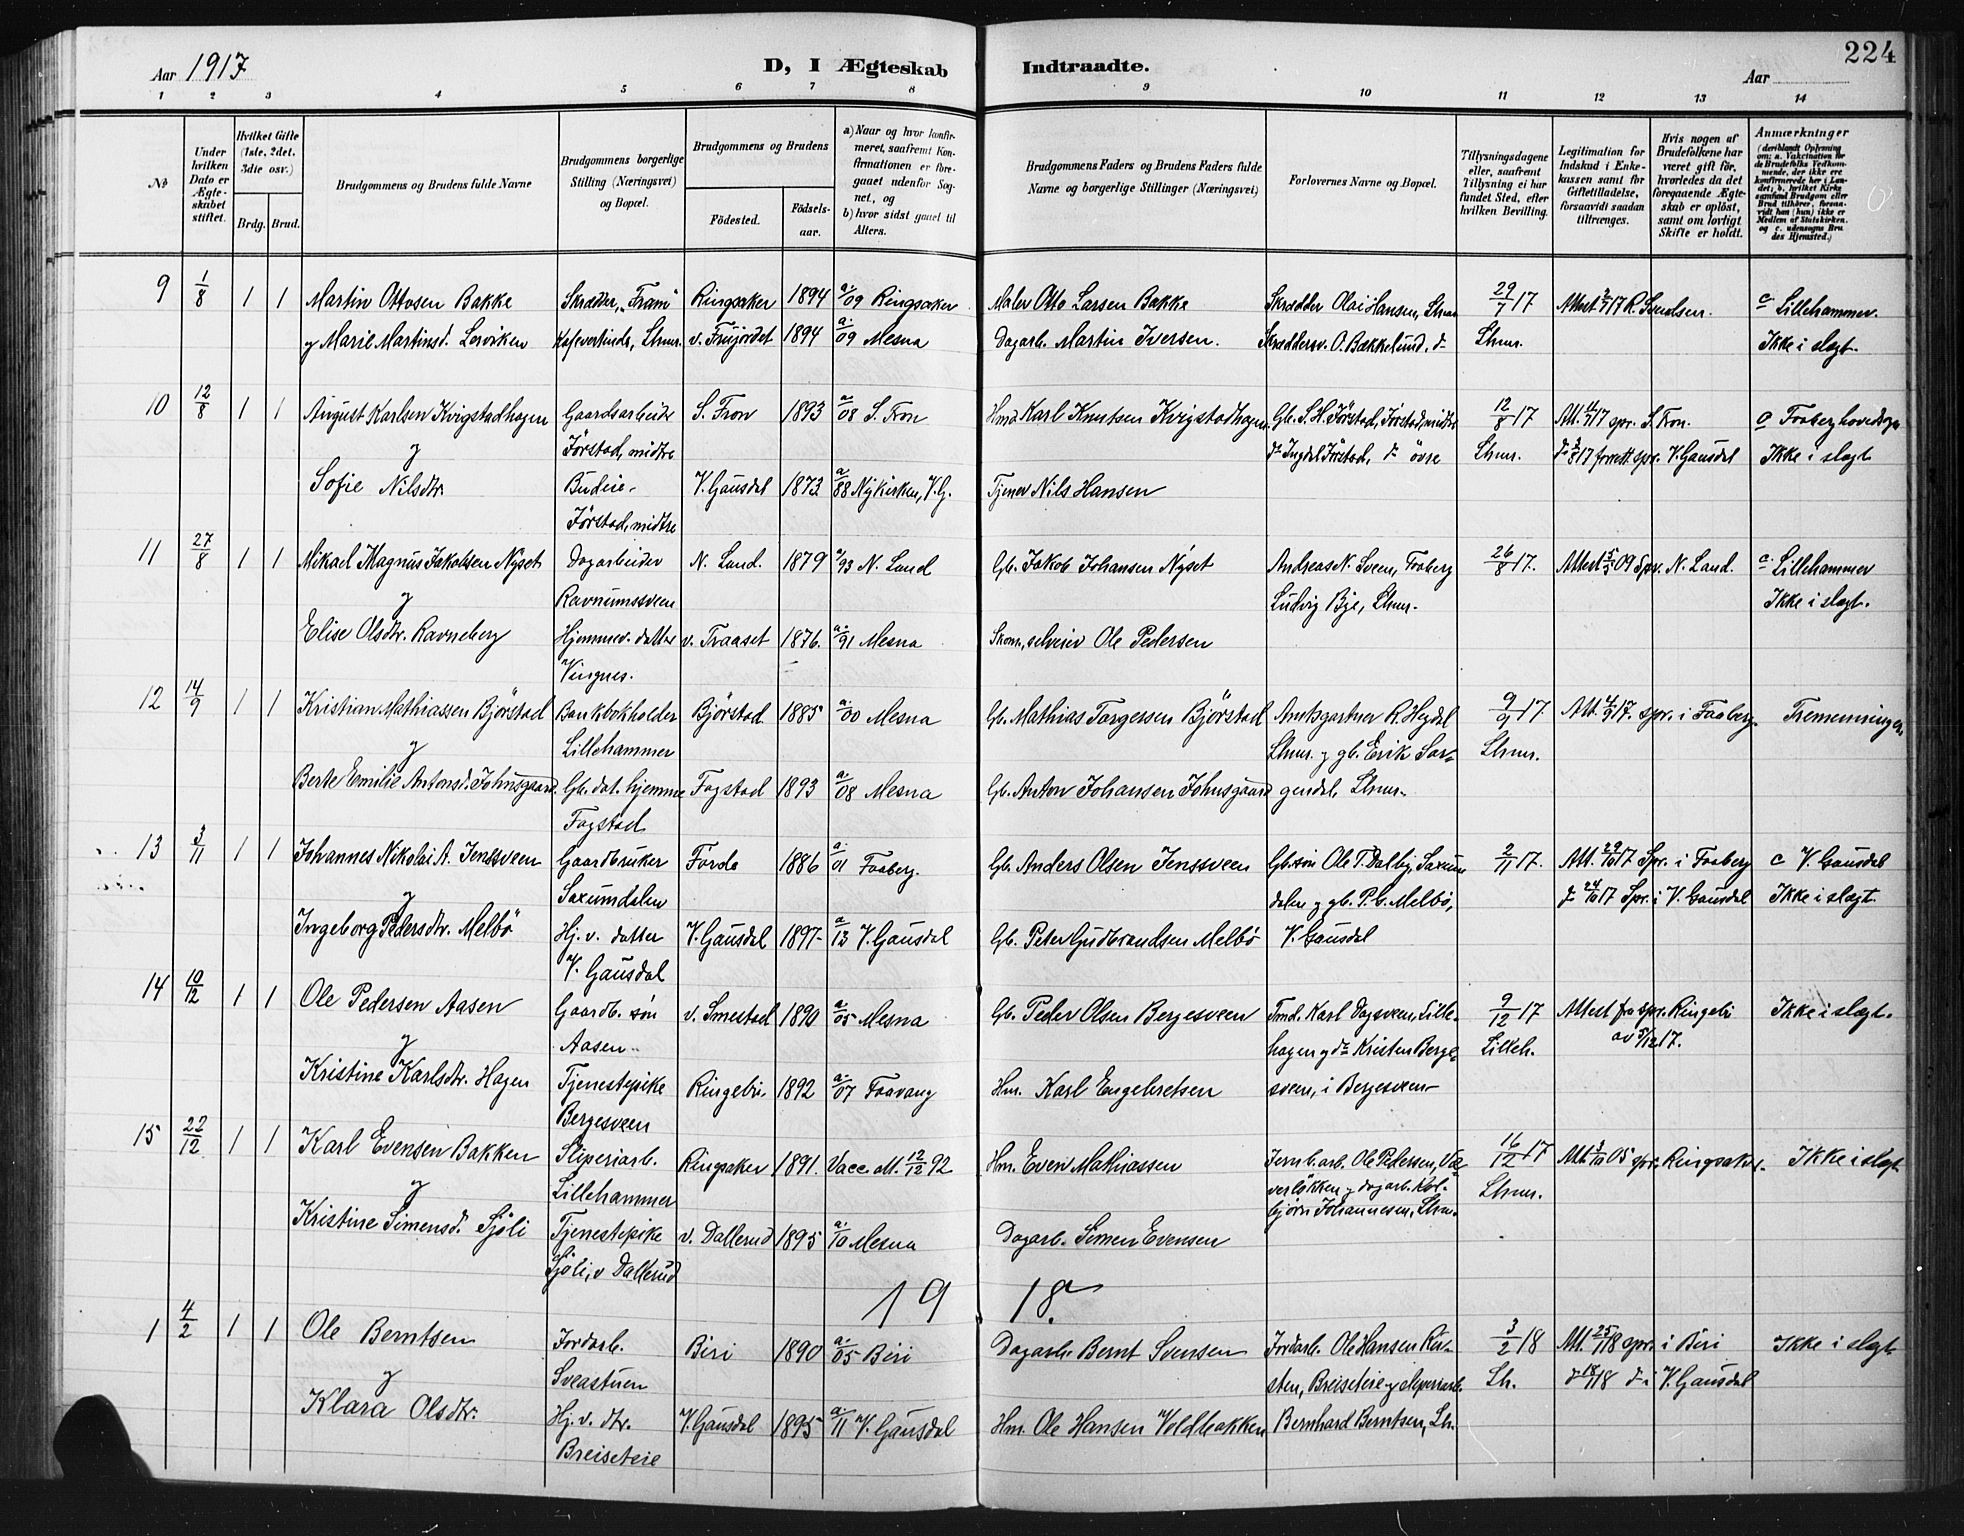 224
Aar 1917 D, I Ægteskab Indtraadte. Aar
1 2 3 4 5 6 7 8 9 10 11 12 13 14
No
Under hvilken Dato er Ægteskabet stiftet.
Hvilket Gifte (1ste, 2det, 3die osv.)
Brdg. Brud.
Brudgommens og Brudens fulde Navne
Brudgommens borgerlige Stilling (Næringsvei) og Bopæl.
Brudgommens og Brudens
Fødested. Fødselsaar.
a) Naar og hvor konfirmeret, saafremt Konfirmationen er foregaaet udenfor Sognet, og
b) hvor sidst gaaet til Alters.
Brudgommens Faders og Brudens Faders fulde Navne og borgerlige Stillinger (Næringsvei)
Forlovernes Navne og Bopæl.
Tillysningsdagene eller, saafremt Tillysning ei har fundet Sted, efter hvilken Bevilling.
Legitimation for Indskud i Enkekassen samt for Giftetilladelse, forsaavidt saadan tiltrænges.
Hvis nogen af Brudefolkene har været gift før, hvorledes da det foregaaende Ægteskab er opløst, samt om lovligt Skifte er holdt.
Anmærkninger (deriblandt Oplysning om: a. Vakcination for de Brudefolks Vedkommende, der ikke ere konfirmerede her i Landet; b. hvilket Kirkesamfund Brudgom eller Brud tilhører, forsaavidt han (hun) ikke er Medlem af Statskirken. og c. udensogns Brudes Hjemsted.)
9 1/8 1 1 Martin Ottosen Bakke Skrædder, "Fram" Ringsaker 1894 a/09 Ringsaker Maler Otto Larsen Bakke Skrædder Olai Hansen, Lhmr 29/7 17 R. Svendsen. c Lillehammer.
y Marie Martinsd. Lorviken Lhmr. 1894 a/09 Mesna Dagarb. Martin Iversen. O. Bækkelund, do Lhmr. Ikke i slægt.
10 12/8 1 1 August Karlsen Kvigstadhagen Gaardsarbeider S. Fron 1893 a/08 S. Fron Hmd Karl Knutsen Kvigstadhagen Gb. S. H. Jørstad, Jørstad, midtre 12/8 17 Att. 17 spr. S. Fron. c Faaberg hovedsogn
y Jørstad, midtre do Ingdal Jørstad, do øvre Lhmr. V. Gausdal Ikke i slægt
Sofie Nilsdtr. Budeie V. Gausdal 1873 a/88 Nykirken, V. G. Tjener Nils Hansen
Jørstad, midtre
11 27/8 1 1 Mikael Magnus Jakobsen Nyset Dagarbeider N. Land. 1879 a/93 N. Land Gb. Jakob Johansen Nyset Andreas N. Sveen, Faaberg 26/8 17. Attest 5/5 09 Spr. N. Land. c Lillehammer
y Ravnumssveen Ludvig Bye, Lhmr. Ikke i slægt.
Elise Olsdtr. Ravneberg Hjemmev. datter v. Traaset 1876. a/91 Mesna Ole Pedersen
Vingnes.
12 14/9 1 1 Kristian Mathiassen Bjørstad Bankbokholder Bjørstad 1885 a/00 Mesna Gb. Mathias Torgersen Bjørstad Amtsgartner R. Heydal 9/9 17 Att. 4/9 17. spr. i Faaberg. Tremenninger.
y Lillehammer Lhmr. y gb. Erik Sor- Lhmr.
Berte Emilie Antonsd. Johnsgaard Gb. dat. hjemme Fagstad 1893 a/08 Mesna Gb. Anton Johansen Johnsgaard gendal Lhmr.
Fagstad
13 3/11 1 1 Johannes Nikolai A. Jenssveen Gaardbruker Forda 1886 a/01 Faaberg. Gb. Anders Olsen Jenssveen Gb. søn Ole T. Dalby, Saxum- 2/11 17. Att. 29/10 17 Spr. i Faaberg c V. Gausdal
y Saxumdalen dalen y gb. P. G. Melbø, do 24/10 17 Spr. i V. Gausdal Ikke i slægt.
Ingeborg Pedersdtr. Melbø Hj. v. datter V. Gausdal 1897 a/13 V. Gausdal Gb. Peter Gudbrandsen Melbø V. Gausdal
V. Gausdal
14 10/12 1 1 Ole Pedersen Aasen Gaardb. søn v. Smestad 1890 a/05 Mesna Gb. Peder Olsen Bergesveen Tmd. Karl Dagsveen, Lille- 9/12 17 Attest fra spr. Ringebu Ikke i slægt.
y Aasen hagen y do Kristen Berge- Lilleh. av 5/12 17.
Kristine Karlsdtr. Hagen Tjenestepike Ringebu 1892 a/07 Faavang Hm. Karl Engebretsen sveen, i Bergesveen
Bergesveen
15 22/12 1 1 Karl Evensen Bakken Sliperiarb. Ringsaker 1891. Vacc att. 12/12 92 Hm. Even Mathiassen Jernb. arb. Ole Pedersen, 16/12 17 Att. 05 spr. Ringsaker. Ikke i slægt
y Lillehammer verløkken y dagarb. Kol- Lhmr.
Kristine Simensd. Sjøli Tjenestepike v. Dallerud 1895 a/10 Mesna Dagarb. Simen Evensen bjørn Johannesen, Lhmr.
Sjøli, v Dallerud
1918.
1 4/2 1 1 Ole Berntsen Jordarb. Biri 1890 a/05 Biri Dagarb. Bernt Svensen Jordarb. Ole Hansen Rusten, 3/2 18 Att. 25/1 18 spr. i Biri Ikke i slægt
y Sveastuen Breiseteie y sliperiarb. Lh. do 18/1 18 do i V. Gausdal
Klara Olsdtr. Hj. v. dtr. V. Gausdal 1895 a/11 V. Gausdal Hm. Ole Hansen Voldbakken Bernhard Berntsen, Lh.
Breiseteie